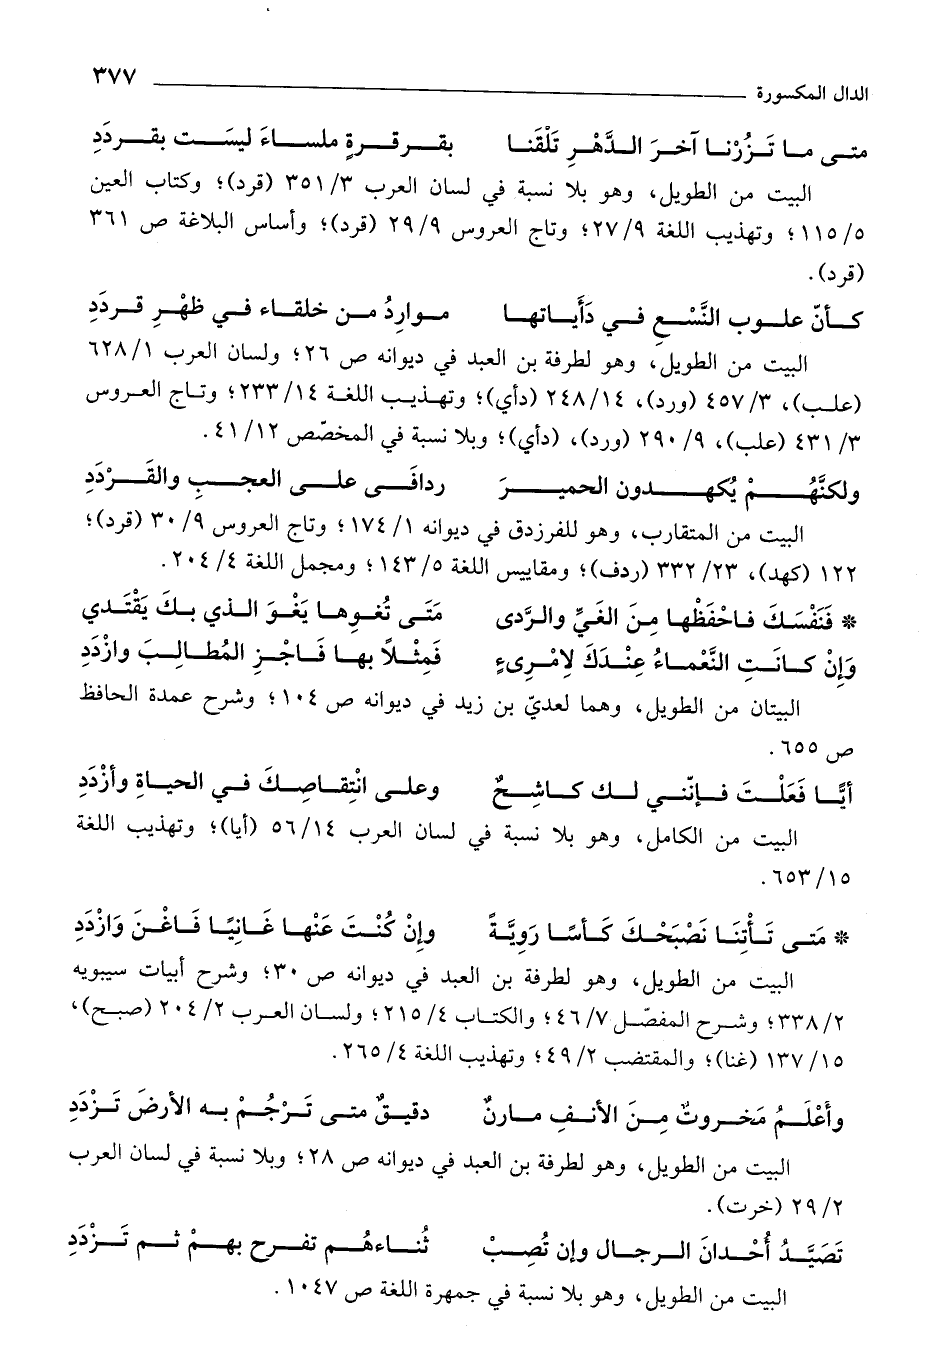 الدال المكسورة ٣٧٧
متى ما تَزُرْنا آخرَ الدَّهْرِ تَلْقَنا بقرقرةٍ ملساءَ ليسَت بقردَدِ
البيت من الطويل، وهو بلا نسبة في لسان العرب ٣/ ٣٥١ (قرد)؛ وكتاب العين
٥/ ١١٥؛ وتهذيب اللغة ٩/ ٢٧؛ وتاج العروس ٩/ ٢٩ (قرد)؛ وأساس البلاغة ص ٣٦١
(قرد).
كأنّ علوب النَّسْعِ في دَأَياتها مواردُ من خلقاء في ظهْرِ قردَدِ
البيت من الطويل، وهو لطرفة بن العبد في ديوانه ص ٢٦؛ ولسان العرب ١/ ٦٢٨
(علب)، ٣/ ٤٥٧ (ورد)، ١٤/ ٢٤٨ (دأي)؛ وتهذيب اللغة ١٤/ ٢٣٣؛ وتاج العروس
٣/ ٤٣١ (علب)، ٩/ ٢٩٠ (ورد)، (دأي)؛ وبلا نسبة في المخصّص ١٢/ ٤١.
ولكنَّهُمْ يُكهدون الحميرَ ردافَى على العجبِ والقَرْدَدِ
البيت من المتقارب، وهو للفرزدق في ديوانه ١/ ١٧٤؛ وتاج العروس ٩/ ٣٠ (قرد)؛
١٢٢ (كهد)، ٢٣/ ٣٣٢ (ردف)؛ ومقاييس اللغة ٥/ ١٤٣؛ ومجمل اللغة ٤/ ٢٠٤.
* فَنَفْسَكَ فاحْفَظْها مِنَ الغَيِّ والرَّدى مَتَى تُغوِها يَغْوَ الذي بكَ يَقْتَدي
وَإِنْ كانَتِ النَّعْماءُ عِنْدَكَ لامْرِىءٍ فَمِثْلاً بها فَاجْزِ المُطالِبَ وازْدَدِ
البيتان من الطويل، وهما لعديّ بن زيد في ديوانه ص ١٠٤؛ وشرح عمدة الحافظ
ص ٦٥٥.
أيَّا فَعَلْتَ فإنّني لك كاشِحٌ وعلى انْتِقاصِكَ في الحياةِ وأزْدَدِ
البيت من الكامل، وهو بلا نسبة في لسان العرب ١٤/ ٥٦ (أيا)؛ وتهذيب اللغة
١٥/ ٦٥٣.
* مَتى تَأْتِنَا نَصْبَحْكَ كَأسًا رَوِيَّةً وإنْ كُنْتَ عَنْها غَانِيًا فَاغْنَ وَازْدَدِ
البيت من الطويل، وهو لطرفة بن العبد في ديوانه ص ٣٠؛ وشرح أبيات سيبويه
٢/ ٣٣٨؛ وشرح المفصّل ٧/ ٤٦؛ والكتاب ٤/ ٢١٥؛ ولسان العرب ٢/ ٢٠٤ (صبح)،
١٥/ ١٣٧ (غنا)؛ والمقتضب ٢/ ٤٩؛ وتهذيب اللغة ٤/ ٢٦٥.
وأَعْلَمُ مَخروتٌ مِنَ الأنفِ مارنٌ دقيقٌ متى تَرْجُمْ به الأرضَ تَزْدَدِ
البيت من الطويل، وهو لطرفة بن العبد في ديوانه ص ٢٨؛ وبلا نسبة في لسان العرب
٢/ ٢٩ (خرت).
تَصَيَّدُ أُحْدانَ الرجال وإن تُصِبْ ثُناءهُم تفرح بهمْ ثم تَزْدَدِ
البيت من الطويل، وهو بلا نسبة في جمهرة اللغة ص ١٠٤٧.